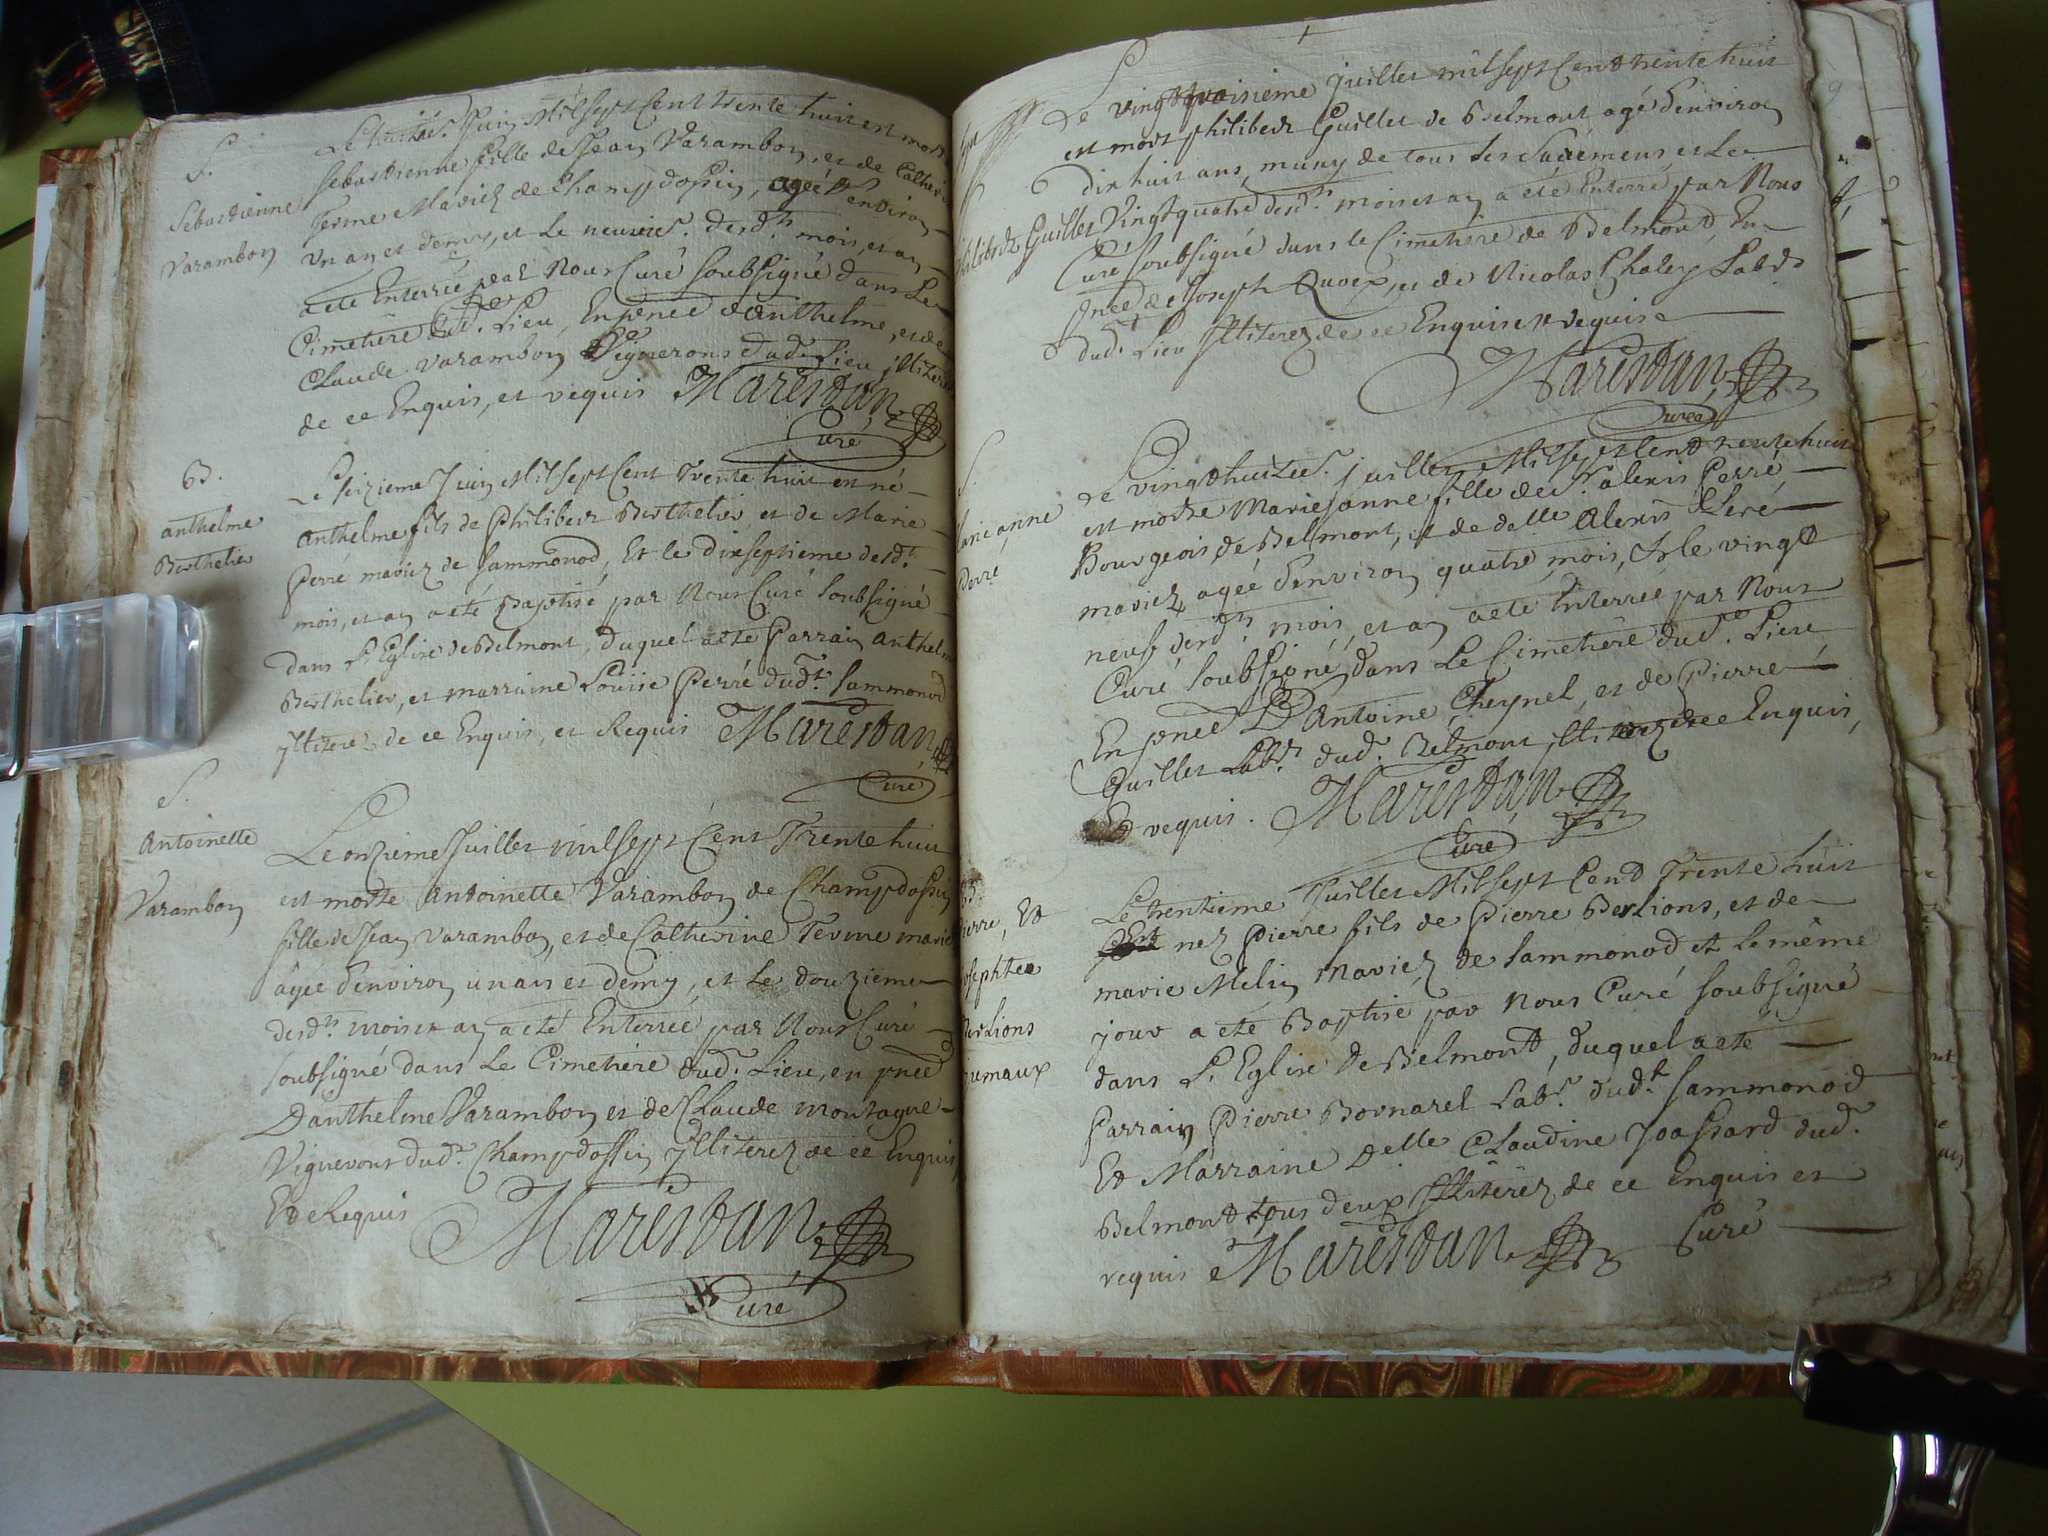 S.
Sebastienne
Varambon
Le huitie. Juin Mil sept Cent trente huit est morte
Sebastienne fille de Jean Varambon, et de Catherine
Terme Mariez de Champdossin, agée d'environ
un an et demy, et Le neuvie. desdts. mois, et an
a eté Enterrée par Nous Curé soubsigné dans Le
Cimetiere dud. Lieu, En pnce d'anthelme, et de
Claude Varambon Vignerons dud. Lieu jlliterez
de ce Enquis, et requis Marestan
Curé
B.
anthelme
Berthelier
Le seizieme Juin Mil sept Cent Trente huit est né
Anthelme fils de Philibert Berthelier et de Marie
Perré mariez de Sammonod, Et le dix septieme desdts.
mois, et an a eté Baptisé par Nous Curé soubsigné
dans L'Eglise de Belmont, duquel a eté Parrain Anthelme
Berthelier, et marraine Loüise Perré dudt. Sammonod
jlliterez de ce Enquis, et Requis Marestan
Curé
S.
Antoinette
Varambon
Le onzieme Juillet mil sept Cent Trente huit
est morte Antoinette Varambon de Champdossin
fille de Jean Varambon, et de Catherine Terme mariez
âgée d'environ un an et demy, et Le douzieme
desdts. mois et an a eté Enterrée par Nous Curé
soubsigné dans Le Cimetiere dud. Lieu, en pnce
D'anthelme Varambon et de Claude montagne
Vignerons dud. Champdossin jlliterez de ce Enquis
Et de Requis
Marestan
Curé
Philibert Guillet
Le vingt troisieme juillet mil sept Cent trente huit
est mort philibert Guillet de Belmont agé d'environ
dix huit ans, muny de tous les Sacremens, et Le
Vingt quatre desdts. mois et an a eté Enterré par Nous
Curé soubsigné dans le Cimetiere de Belmont En
pnce de Joseph Quoex, et de Nicolas Chaley Labrs
dud. Lieu jlliterez de ce Enquis et requis
Marestan
Curé
S.
Marie anne
Perré
Le vingt huitie. juillet Mil sept Cent trente huit
est morte Marie anne fille de Sr. alexis Perré
Bourgeois de Belmont, et de delle Alexis
mariez, agée d'environ quatre mois, Et le vingt
neuf desdts. mois, et an a eté Enterrée par Nous
Curé soubsigné dans Le Cimetiere dud. Lieu
En pnce D'Antoine Cheynel, et de Pierre
Guillet Labrs. dud. Belmont jlliterez de ce Enquis,
Et requis. Marestan
Curé
B.
Pierre, Et
Josephte
Berlions
Jumaux
Le trentieme Juillet Mil sept Cent Trente huit
nez Pierre fils de Pierre Berlions, et de
marie Melin Mariez de Sammonod et le même
jour a eté Baptisé par Nous Curé soubsigné
dans L'Eglise de Belmont, duquel a eté
Parrain Pierre Bornarel Labr. dudt. Sammonod
Et Marraine Delle Claudine Joassard dud.
Belmont tous deux jlliterez de ce Enquis et
requis Marestan Curé